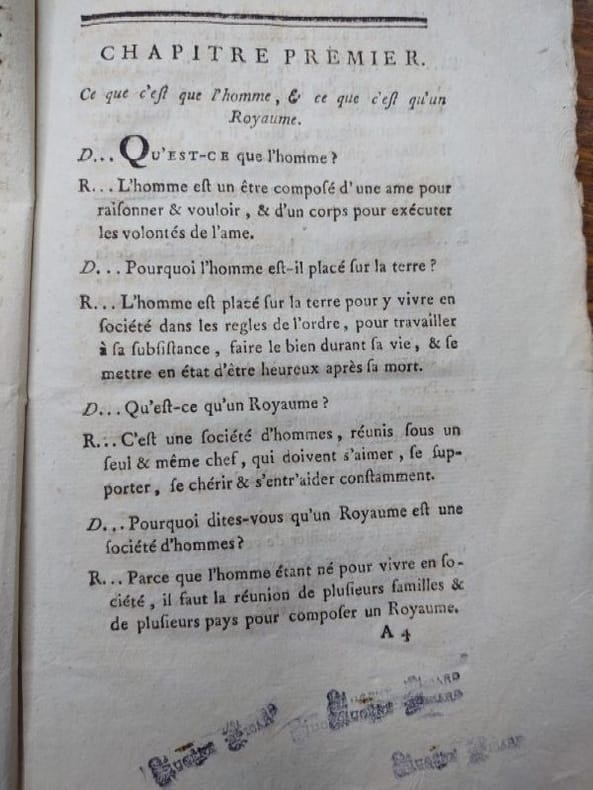 CHAPITRE PREMIER.
Ce que c'eſt que l'homme, & ce que c'eſt qu'un
Royaume.
D... QU'EST-CE que l'homme ?
R... L'homme eſt un être compoſé d'une ame pour
raiſonner & vouloir, & d'un corps pour exécuter
les volontés de l'ame.
D... Pourquoi l'homme eſt-il placé ſur la terre ?
R... L'homme eſt placé ſur la terre pour y vivre en
ſociété dans les regles de l'ordre, pour travailler
à ſa ſubſiſtance, faire le bien durant ſa vie, & ſe
mettre en état d'être heureux après ſa mort.
D... Qu'eſt-ce qu'un Royaume ?
R... C'eſt une ſociété d'hommes, réunis ſous un
ſeul & même chef, qui doivent s'aimer, ſe ſup-
porter, ſe chérir & s'entr'aider conſtamment.
D... Pourquoi dites-vous qu'un Royaume eſt une
ſociété d'hommes ?
R... Parce que l'homme étant né pour vivre en ſo-
ciété, il faut la réunion de pluſieurs familles &
de pluſieurs pays pour compoſer un Royaume.
A 4